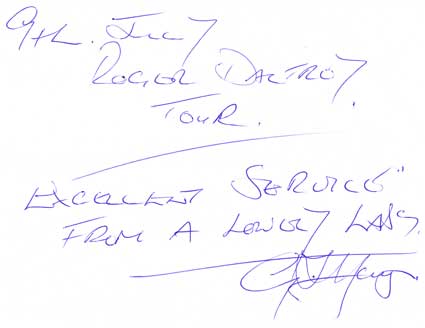 9th. July
Roger Daltrey
Tour.
Excellent Service"
From a lovely lass.